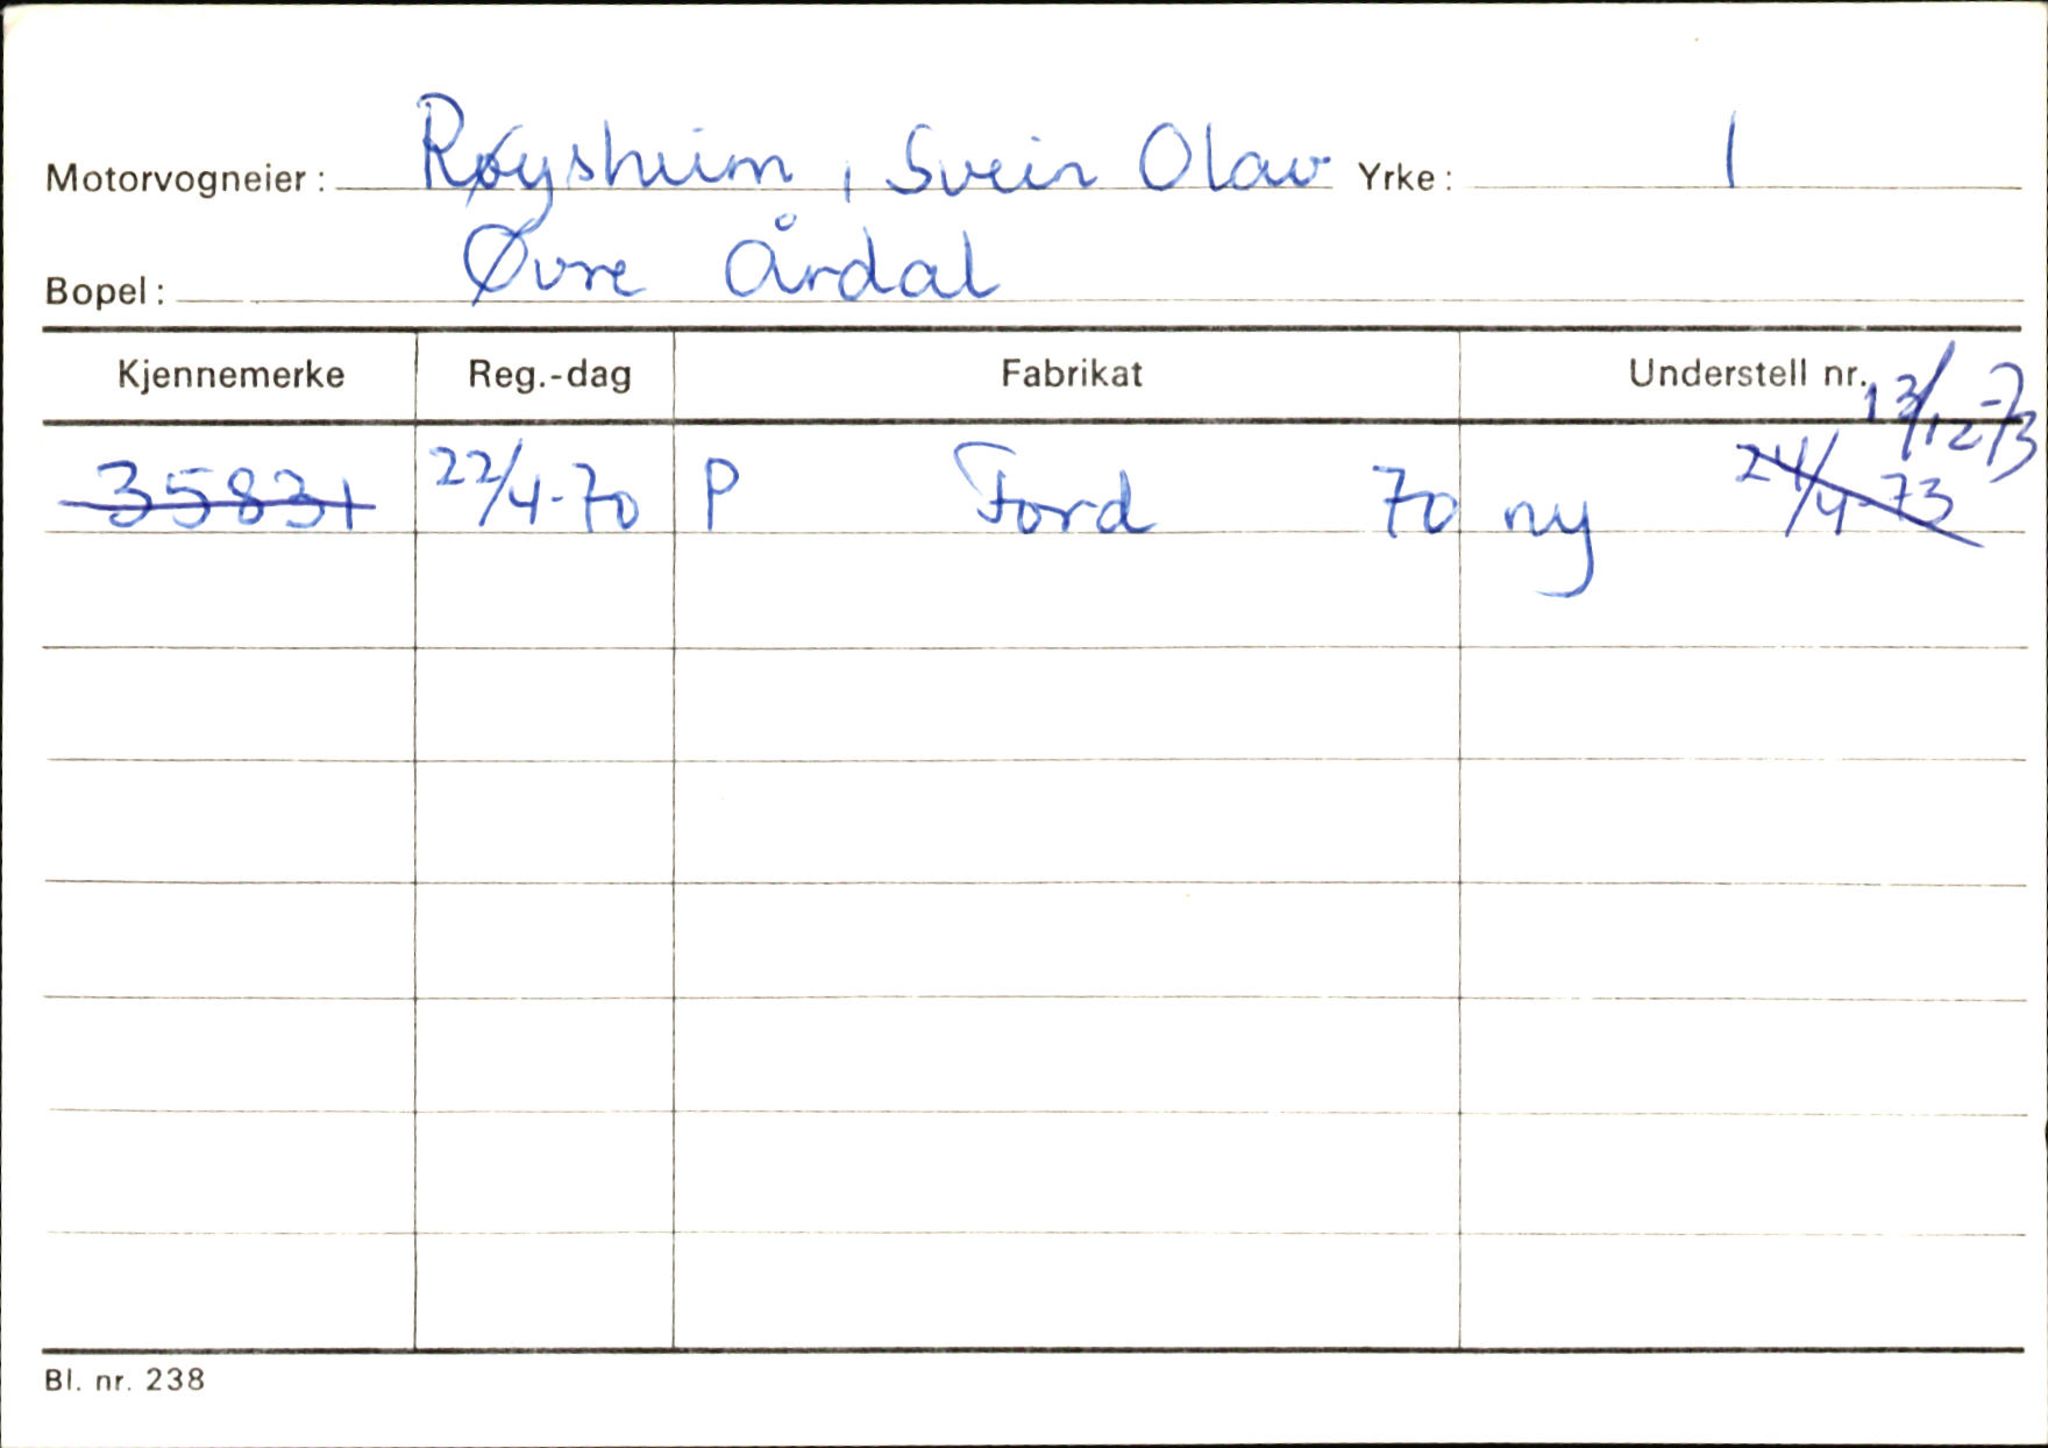 Motorvogneier: Røysheim, Svein Olav Yrke: 1
Bopel: Øvre Årdal
Kjennemerke Reg.-dag Fabrikat Understell nr.
13/12-73
35831 22/4-70 P Ford 70 ny 24/4-73
Bl. nr. 238